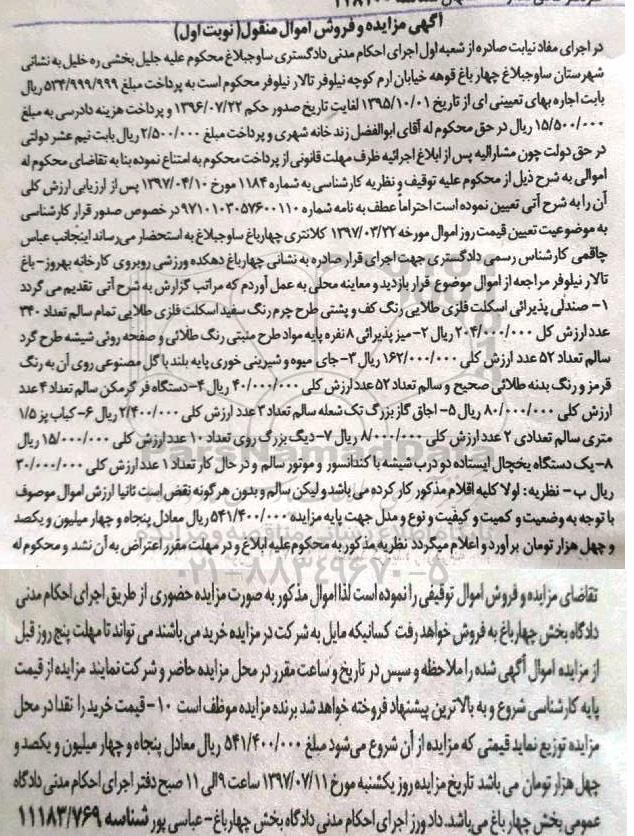 آگهی مزایده و فروش اموال منقول( نوبت اول)
در اجرای مفاد نیابت صادره از شعبه اول اجرای احکام مدنی دادگستری ساوجبلاغ محکوم علیه جلیل بخشی ره خلیل به نشانی
شهرستان ساوجبلاغ چهار باغ قوهه خیابان ارم کوچه نیلوفر تالار نیلوفر محکوم است به پرداخت مبلغ ۵۳۴/۹۹۹/۹۹۹ ریال
بابت اجاره بهای تعیینی ای از تاریخ ۱۳۹۵/۱۰/۰۱ لغایت تاریخ صدور حکم ۱۳۹۶/۰۷/۲۲ و پرداخت هزینه دادرسی به مبلغ
۱۵/۵۰۰/۰۰۰ ریال در حق محکوم له آقای ابوالفضل زند خانه شهری و پرداخت مبلغ ۲/۵۰۰/۰۰۰ ریال بابت نیم عشر دولتی
در حق دولت چون مشارالیه پس از ابلاغ اجرائیه ظرف مهلت قانونی از پرداخت محکوم به امتناع نموده بنا به تقاضای محکوم له
اموالی به شرح ذیل از محکوم علیه توقیف و نظریه کارشناسی به شماره ۱۱۸۴ مورخ ۱۳۹۷/۰۴/۱۰ پس از ارزیابی ارزش کلی
آن را به شرح آتی تعیین نموده است احتراماً عطف به نامه شماره ۹۷۱۰۱۰۳۰۵۷۶۰۰۱۱۰ در خصوص صدور قرار کارشناسی
به موضوعیت تعیین قیمت روز اموال مورخه ۱۳۹۷/۰۳/۲۲ کلانتری چهارباغ ساوجبلاغ به استحضار می‌رساند اینجانب عباس
چاقمی کارشناس رسمی دادگستری جهت اجرای قرار صادره به نشانی چهارباغ دهکده ورزشی روبروی کارخانه بهروز- باغ
تالار نیلوفر مراجعه از اموال موضوع قرار بازدید و معاینه محلی به عمل آوردم که مراتب گزارش به شرح آتی تقدیم می گردد
۱- صندلی پذیرائی اسکلت فلزی طلایی رنگ کف و پشتی طرح چرم رنگ سفید اسکلت فلزی طلایی تمام سالم تعداد ۳۴۰
عدد ارزش کل ۲۰۴/۰۰۰/۰۰۰ ریال ۲- میز پذیرائی ۸ نفره پایه مواد طرح منبتی رنگ طلائی و صفحه روئی شیشه طرح گرد
سالم تعداد ۵۲ عدد ارزش کلی ۱۶۲/۰۰۰/۰۰۰ ریال ۳- جای میوه و شیرینی خوری پایه بلند با گل مصنوعی روی آن به رنگ
قرمز و رنگ بدنه طلائی صحیح و سالم تعداد ۵۲ عدد ارزش کلی ۴۰/۰۰۰/۰۰۰ ریال ۴- دستگاه فر گرمکن سالم تعداد ۴ عدد
ارزش کلی ۸۰/۰۰۰/۰۰۰ ریال ۵- اجاق گاز بزرگ تک شعله سالم تعداد ۳ عدد ارزش کلی ۲/۴۰۰/۰۰۰ ریال ۶- کباب پز ۱/۵
متری سالم تعدادی ۲ عدد ارزش کلی ۸/۰۰۰/۰۰۰ ریال ۷- دیگ بزرگ روی تعداد ۱۰ عدد ارزش کلی ۱۵/۰۰۰/۰۰۰ ریال
۸- یک دستگاه یخچال ایستاده دو درب شیشه با کندانسور و موتور سالم و در حال کار تعداد ۱ عدد ارزش کلی ۳۰/۰۰۰/۰۰۰
ریال ب - نظریه : اولا کلیه اقلام مذکور کار کرده می باشد و لیکن سالم و بدون هرگونه نقض است ثانیا ارزش اموال موصوف
با توجه به وضعیت و کمیت و کیفیت و نوع و مدل جهت پایه مزایده ۵۴۱/۴۰۰/۰۰۰ ریال معادل پنجاه و چهار میلیون و یکصد
و چهل هزار تومان برآورد و اعلام میگردد نظریه مذکور به محکوم علیه ابلاغ و در مهلت مقرر اعتراض به آن نشد و محکوم له
تقاضای مزایده و فروش اموال توقیفی را نموده است لذا اموال مذکور به صورت مزایده حضوری از طریق اجرای احکام مدنی
دادگاه بخش چهارباغ به فروش خواهد رفت کسانیکه مایل به شرکت در مزایده خرید می باشند می تواند تا مهلت پنج روز قبل
از مزایده اموال آگهی شده را ملاحظه و سپس در تاریخ و ساعت مقرر در محل مزایده حاضر و شرکت نمایند مزایده از قیمت
پایه کارشناسی شروع و به بالاترین پیشنهاد فروخته خواهد شد برنده مزایده موظف است ۱۰- قیمت خرید را نقدا در محل
مزایده توزیع نماید قیمتی که مزایده از آن شروع می‌شود مبلغ ۵۴۱/۴۰۰/۰۰۰ ریال معادل پنجاه و چهار میلیون و یکصد و
چهل هزار تومان می باشد تاریخ مزایده روز یکشنبه مورخ ۱۳۹۷/۰۷/۱۱ ساعت ۹ الی ۱۱ صبح دفتر اجرای احکام مدنی دادگاه
عمومی بخش چهار باغ می‌باشد. دادورز اجرای احکام مدنی دادگاه بخش چهارباغ - عباسی پور شناسه ۱۱۱۸۳/۷۶۹
ParsNamadData
۰۲۱-۸۸۳۴۹۶۷۰-۵